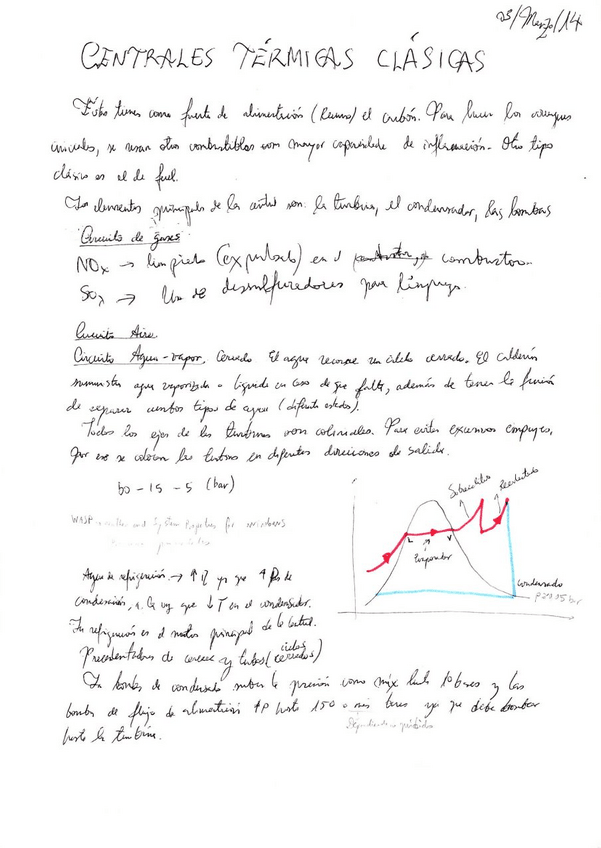 25/Marzo/14
CENTRALES TÉRMICAS CLÁSICAS
Éstas tienen como fuente de alimentación (llama) el carbón. Para hacer los arranques
iniciales, se usan otros combustibles con mayor capacidad de inflamación. Otro tipo
clásico es el de fuel.
Los elementos principales de la central son: la turbina, el condensador, las bombas
Circuito de gases
NOx → limpieza (expulsado) en el combustor.
SOx → Uso de desulfuradores para limpieza.
Circuito Aire.
Circuito Agua-vapor. Cerrado El agua recorre un ciclo cerrado. El calderín
suministra agua vaporizada o líquida en caso de que falte, además de tener la función
de separar ambos tipos de agua (diferente estados).
Todos los ejes de las turbinas son colineales. Para evitar excesivos empujes,
por eso se colocan las turbinas en diferentes direcciones de salida.
60 - 15 - 5 (bar)
Sobrecalentador
Recalentador
L
V
Evaporador
WASP and System for windows
Agua de refrigeración → ↑ η ya que ↑ de
condensación, ya que ↓ T en el condensador.
condensado
P = 0.05 bar
La refrigeración es el motor principal de la central.
Precalentadores de carcasa y tubos (ciclos cerrados)
La bomba de condensado suben la presión como máx hasta 10 bares y las
bombas de flujo de alimentación ↑P hasta 150 o más bares ya que debe bombear
hasta la turbina.